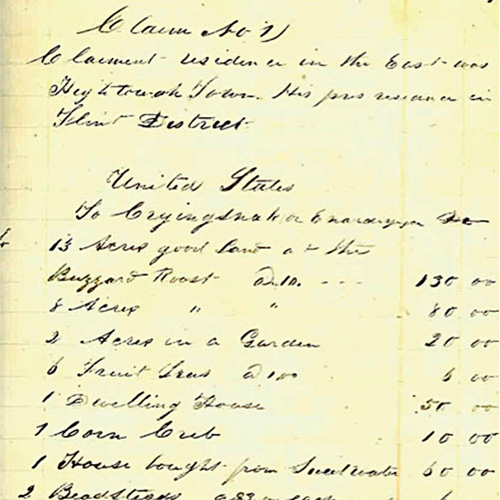 Claim No 1)
Claiment residence in the East was
Hightowah Town. His pres residence in
Flint District
United States
To Cryingsnake or
13 Acres good land at the
Buzzard Roost @10. --- 130 00
8 Acres " " 80 00
2 Acres in a Garden 20 00
6 Fruit Trees @1.00 6 00
1 Dwelling House 50 00
1 Corn Crib 10 00
1 House bought from Sweetwater 60 00
2 Beadsteads each